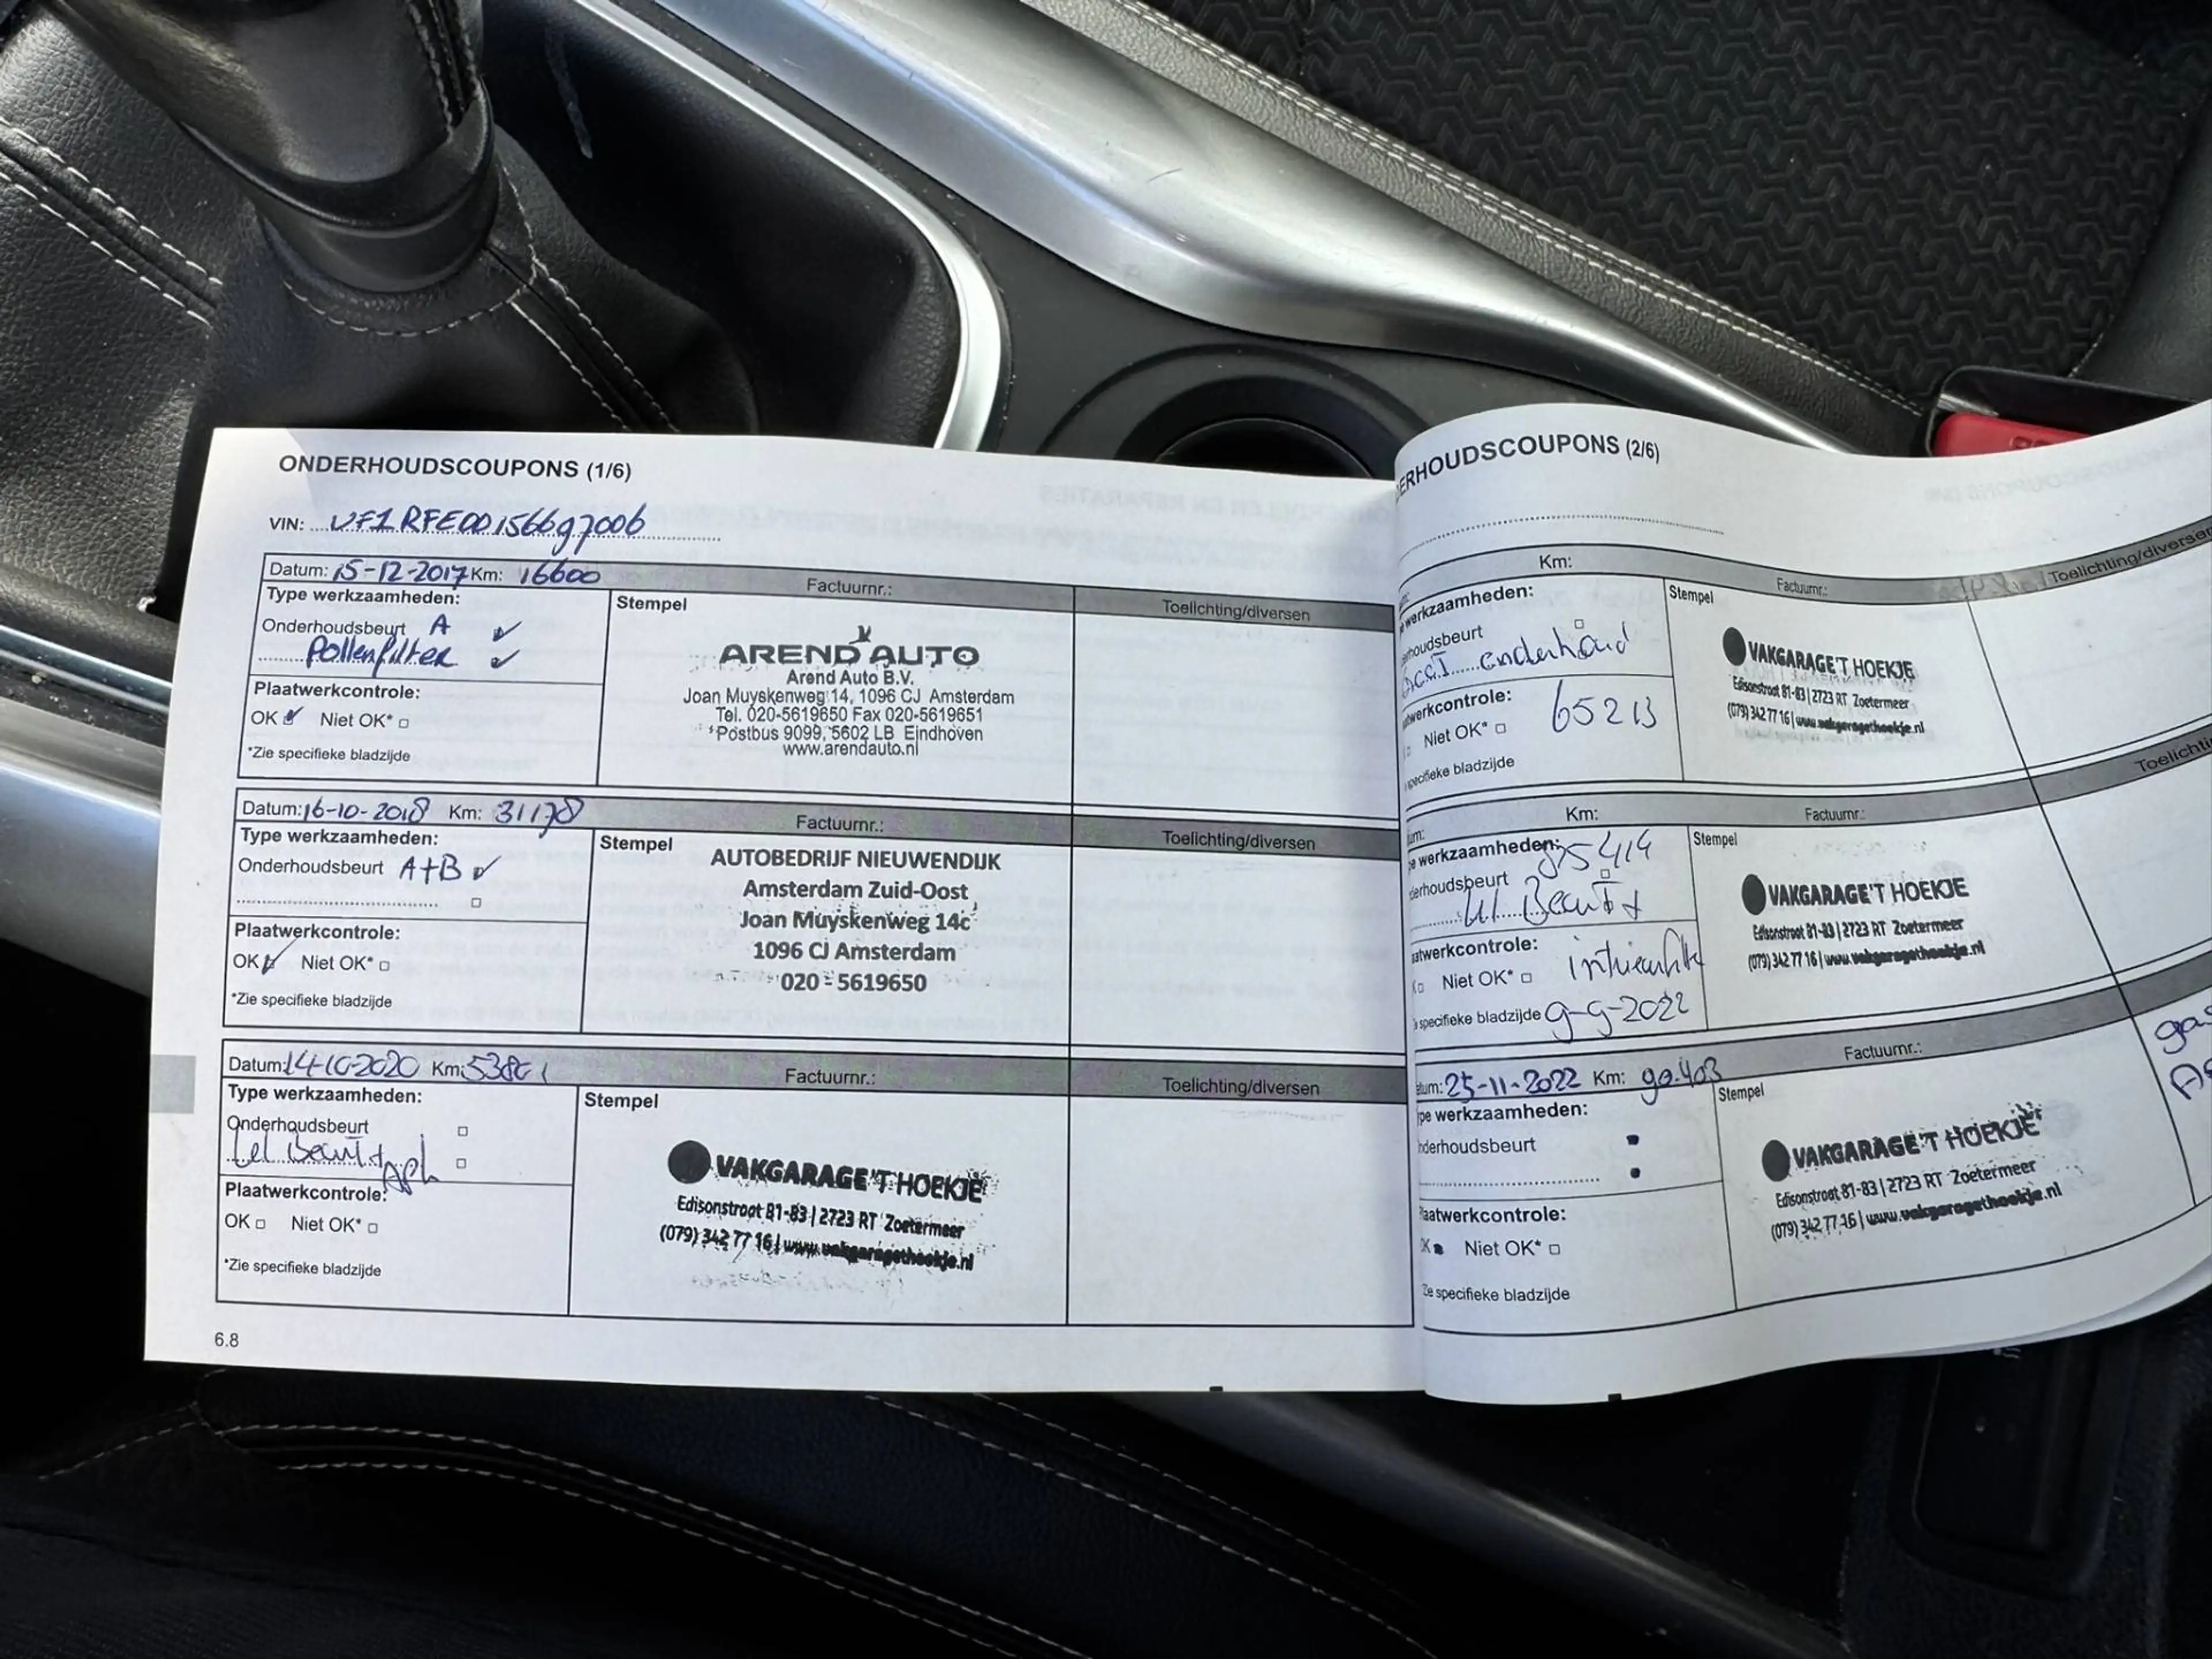 ONDERHOUDSCOUPONS (1/6)
VIN: VF1RFE00156697006
Datum: 15-12-2017 Km: 16600
Factuurnr.:
Toelichting/diversen
Type werkzaamheden:
Onderhoudsbeurt A
Pollenfilter
Plaatwerkcontrole:
OK Niet OK*
*Zie specifieke bladzijde
Stempel
AREND AUTO
Arend Auto B.V.
Joan Muyskenweg 14, 1096 CJ Amsterdam
Tel. 020-5619650 Fax 020-5619651
Postbus 9099, 5602 LB Eindhoven
www.arendauto.nl
Datum: 16-10-2018 Km: 31178
Factuurnr.:
Toelichting/diversen
Type werkzaamheden:
Onderhoudsbeurt A+B
Plaatwerkcontrole:
OK Niet OK*
*Zie specifieke bladzijde
Stempel
AUTOBEDRIJF NIEUWENDIJK
Amsterdam Zuid-Oost
Joan Muyskenweg 14c
1096 CJ Amsterdam
020 - 5619650
Datum: 14-10-2020 Km:
Factuurnr.:
Toelichting/diversen
Type werkzaamheden:
Onderhoudsbeurt
Plaatwerkcontrole:
OK Niet OK*
*Zie specifieke bladzijde
Stempel
VAKGARAGE 'T HOEKJE
Edisonstraat 81-83 | 2723 RT Zoetermeer
(079) 342 77 16 | www.vakgaragethoekje.nl
6.8
ERHOUDSCOUPONS (2/6)
Km:
Factuurnr.:
Toelichting/diversen
werkzaamheden:
houdsbeurt
onderhoud
werkcontrole:
Niet OK* 65213
specifieke bladzijde
Stempel
VAKGARAGE 'T HOEKJE
Edisonstraat 81-83 | 2723 RT Zoetermeer
(079) 342 77 16 | www.vakgaragethoekje.nl
um: Km:
Factuurnr.:
Toelichti
pe werkzaamheden:
derhoudsbeurt
Beurt +
aatwerkcontrole:
Niet OK*
specifieke bladzijde 9-9-2022
Stempel
VAKGARAGE 'T HOEKJE
Edisonstraat 81-83 | 2723 RT Zoetermeer
(079) 342 77 16 | www.vakgaragethoekje.nl
atum: 25-11-2022 Km: 90.403
Factuurnr.:
ype werkzaamheden:
nderhoudsbeurt
laatwerkcontrole:
OK Niet OK*
Zie specifieke bladzijde
Stempel
VAKGARAGE 'T HOEKJE
Edisonstraat 81-83 | 2723 RT Zoetermeer
(079) 342 77 16 | www.vakgaragethoekje.nl
gas